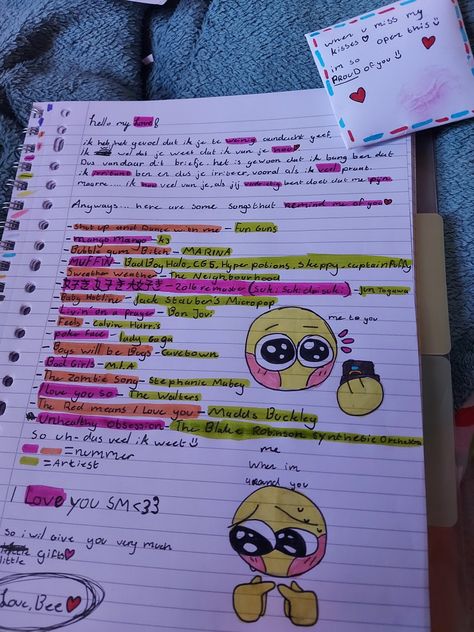 when u miss my
kisses♥ open this :)
im so
PROUD of you :)
hello my love
ik heb het gevoel dat ik je te weinig aandacht geef,
ik wel dat je weet dat ik van je hou♥
Dus vandaar dit briefje. het is gewoon dat ik bang ben dat
ik irritant ben en dus je irriteer, vooral als ik veel praat.
maarre.... ik hou veel van je, als jij verdrietig bent doet dat me pijn
Anyways.... here are some songs that remind me of you♥
- shut up and Dance with me - Fun Guns
- mango mango -
- Bubble gum Bitch - MARINA
- MUFFIN - Bad Boy Halo, CG5, Hyper potions, Skeppy, captain Puffy
- Sweather weather - The Neighbourhood
- 2016 remaster (suki suki daisuki) - Jun Togawa
- Baby Hotline - Jack Stauber's Micropop
- Livin' on a prayer - Bon Jovi
- Feels - Calvin Harris
- poker face - lady Gaga
- Boys will be Bugs - Cavetown
- Bad Girls - M.I.A
- The Zombie Song - Stephanie Mabey
- I love you so - The Walters
- The Red means I Love you - Madds Buckley
- Unhealthy obsession - The Blake Robinson Synthetic Orchestra
So uh- dus veel ik weet :)
= nummer
= Artiest
I Love you SM <33
so i wil give you very much
little gifts♥
Love, Bee♥
me to you
me
when im
around you